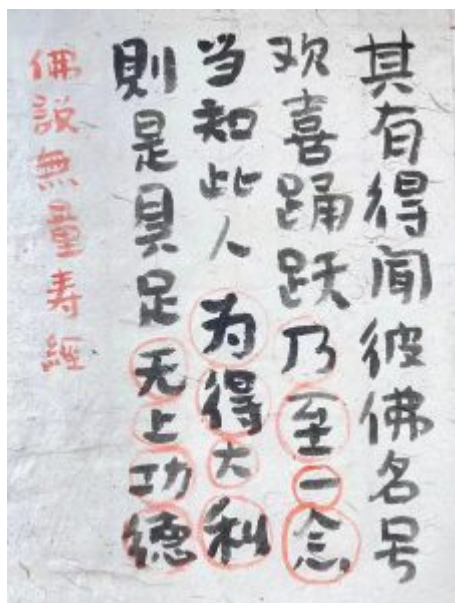 其有得闻彼佛名号
欢喜踊跃乃至一念
当知此人为得大利
則是具足无上功德
佛説無量寿経